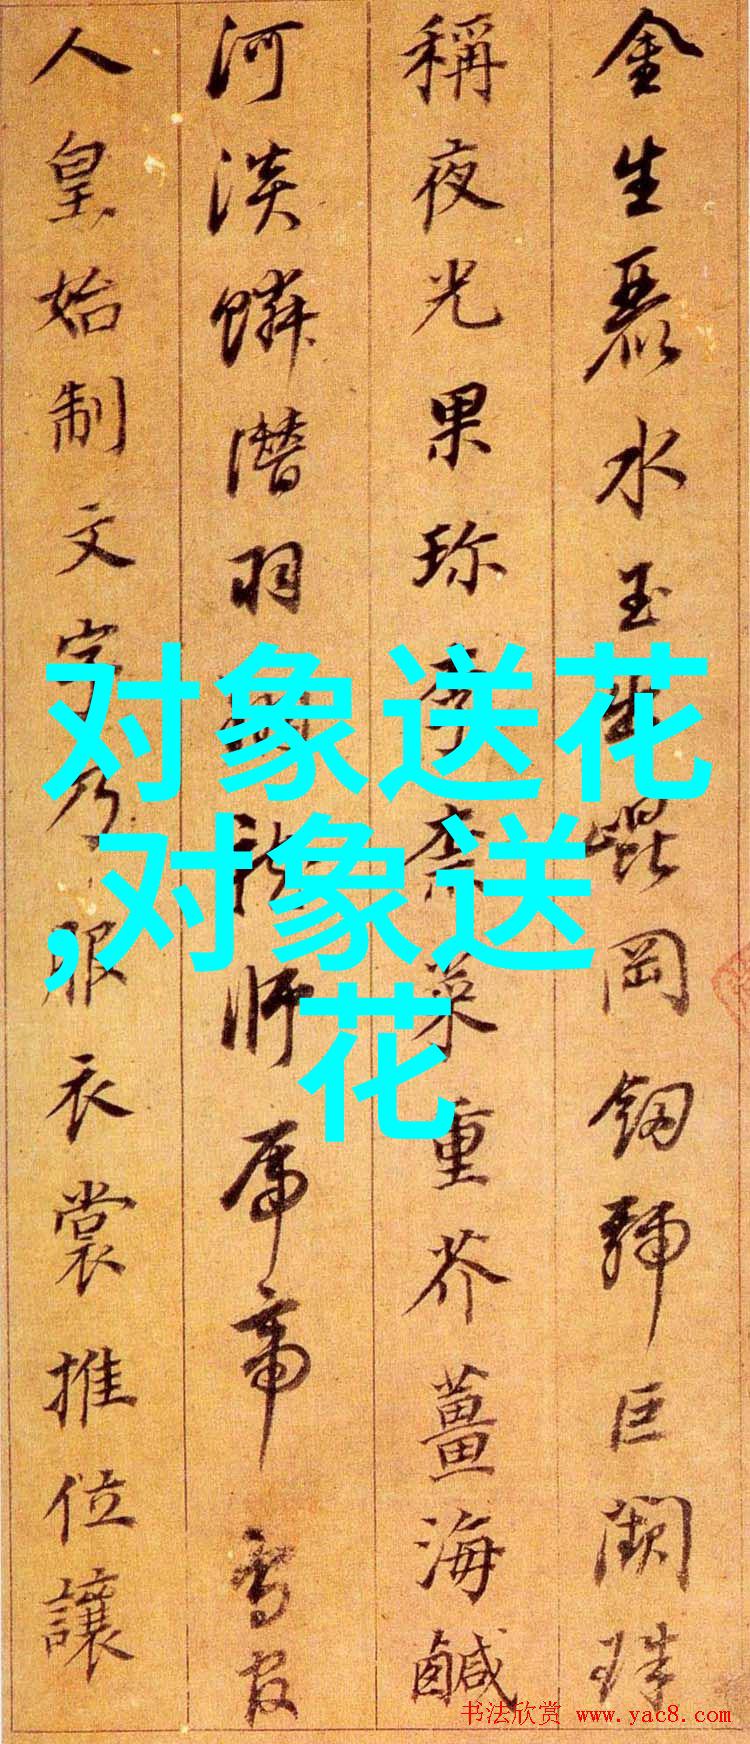 金生麗水玉出崑岡劒號巨闕珠
稱夜光果珍李柰菜重芥薑海鹹
河淡鱗潛羽翔龍師火帝鳥官
人皇始制文字乃服衣裳推位讓
对象送花
,对象送
花
书法欣赏 www.yac8.com